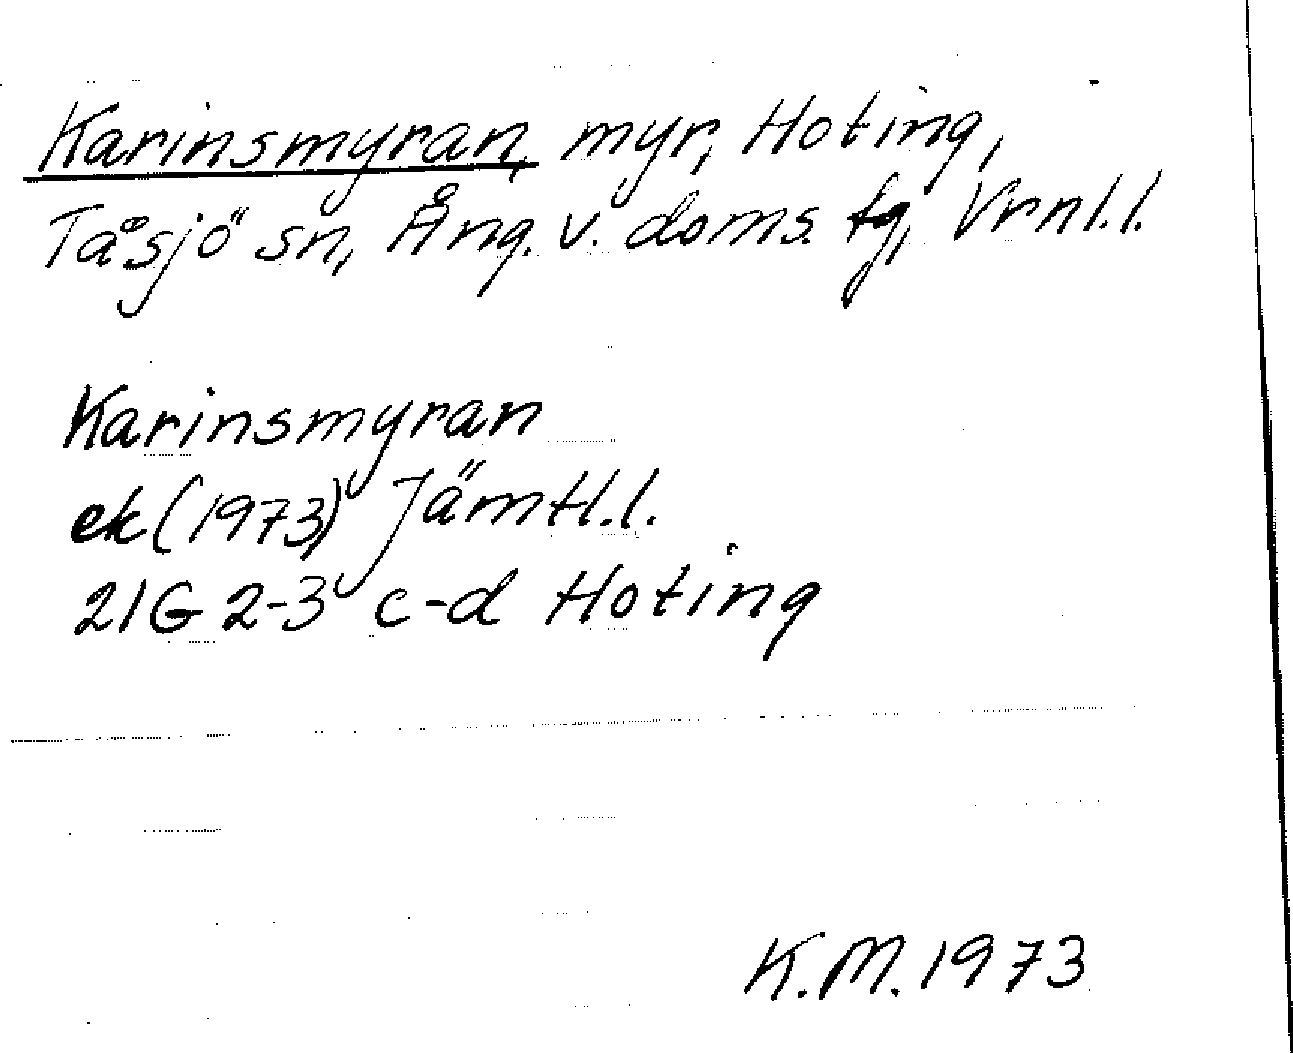 Karinsmyran, myr, Hoting,
Tåsjö sn, Ång. v. doms. tg, Vrnl.l.
Karinsmyran
ek (1973) Jämtl.l.
21G 2-3 c-d Hoting
K.M. 1973